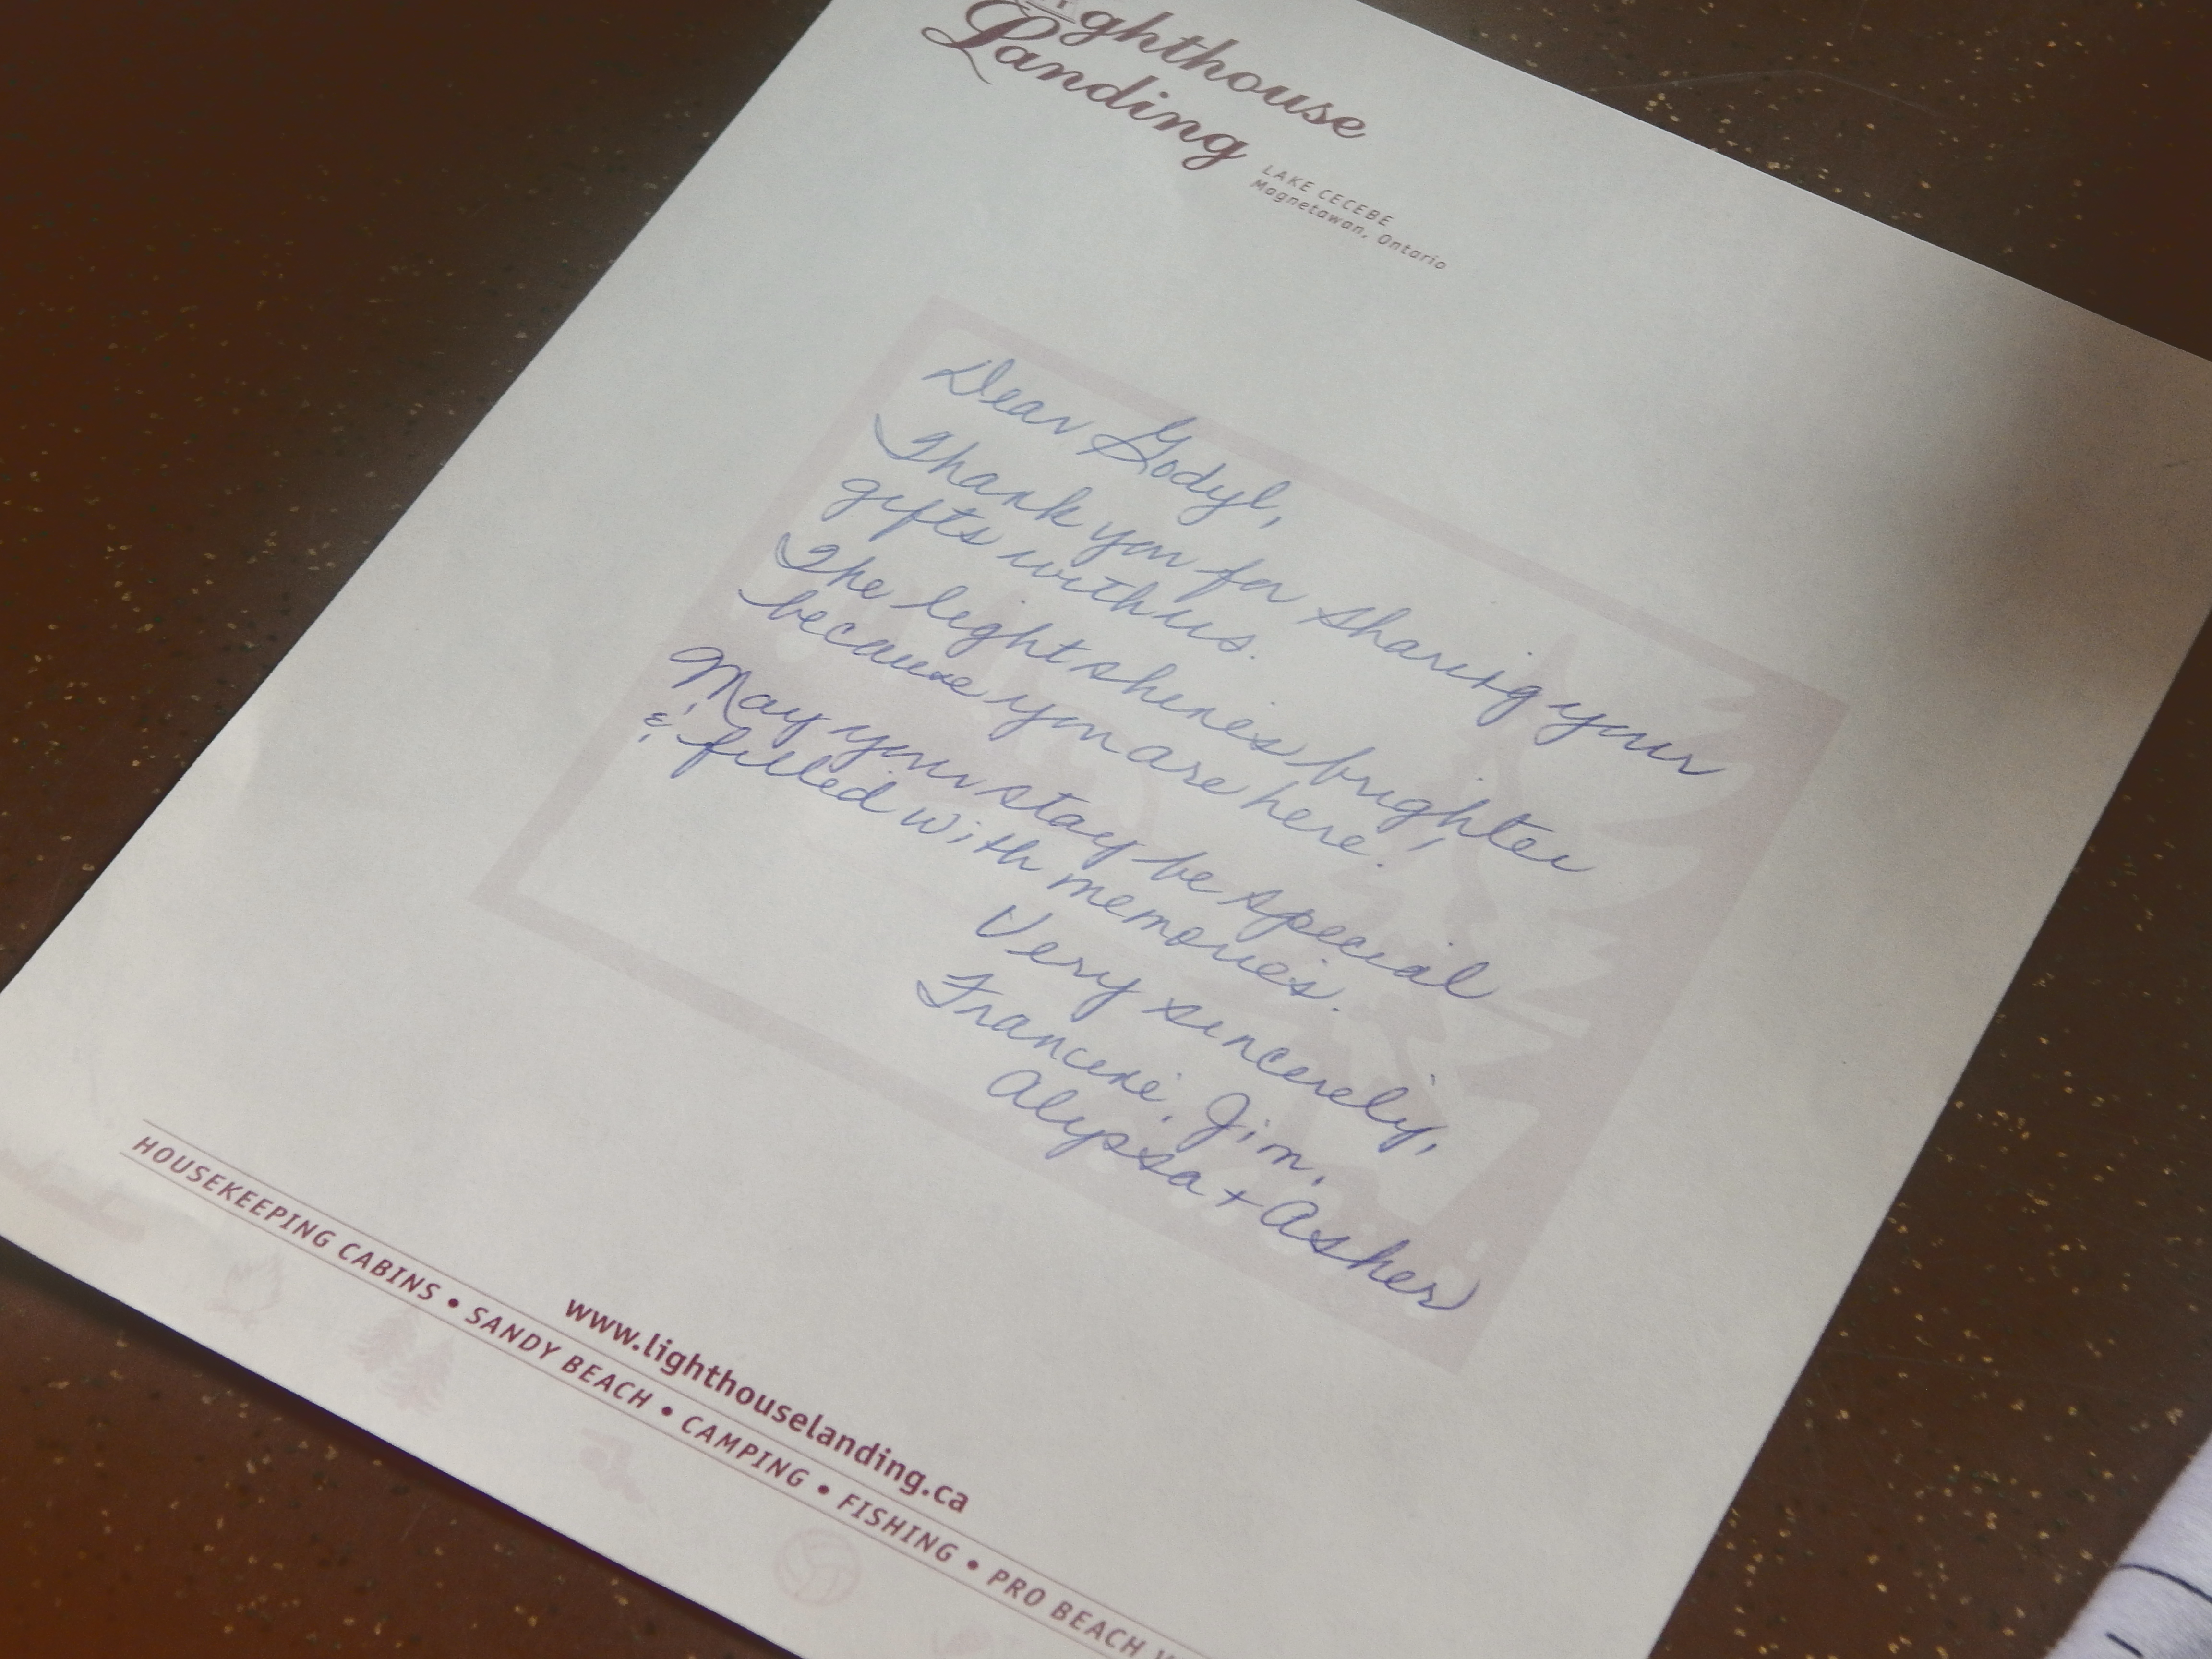 Lighthouse
Landing
LAKE CECEBE
Magnetawan, Ontario
Dear Godyl,
Thank you for sharing your
gifts with us.
The light shines brighter
because you are here!
May your stay be special
& filled with memories.
Very sincerely,
Francine, Jim,
Alyssa + Asher
www.lighthouselanding.ca
HOUSEKEEPING CABINS • SANDY BEACH • CAMPING • FISHING • PRO BEACH V